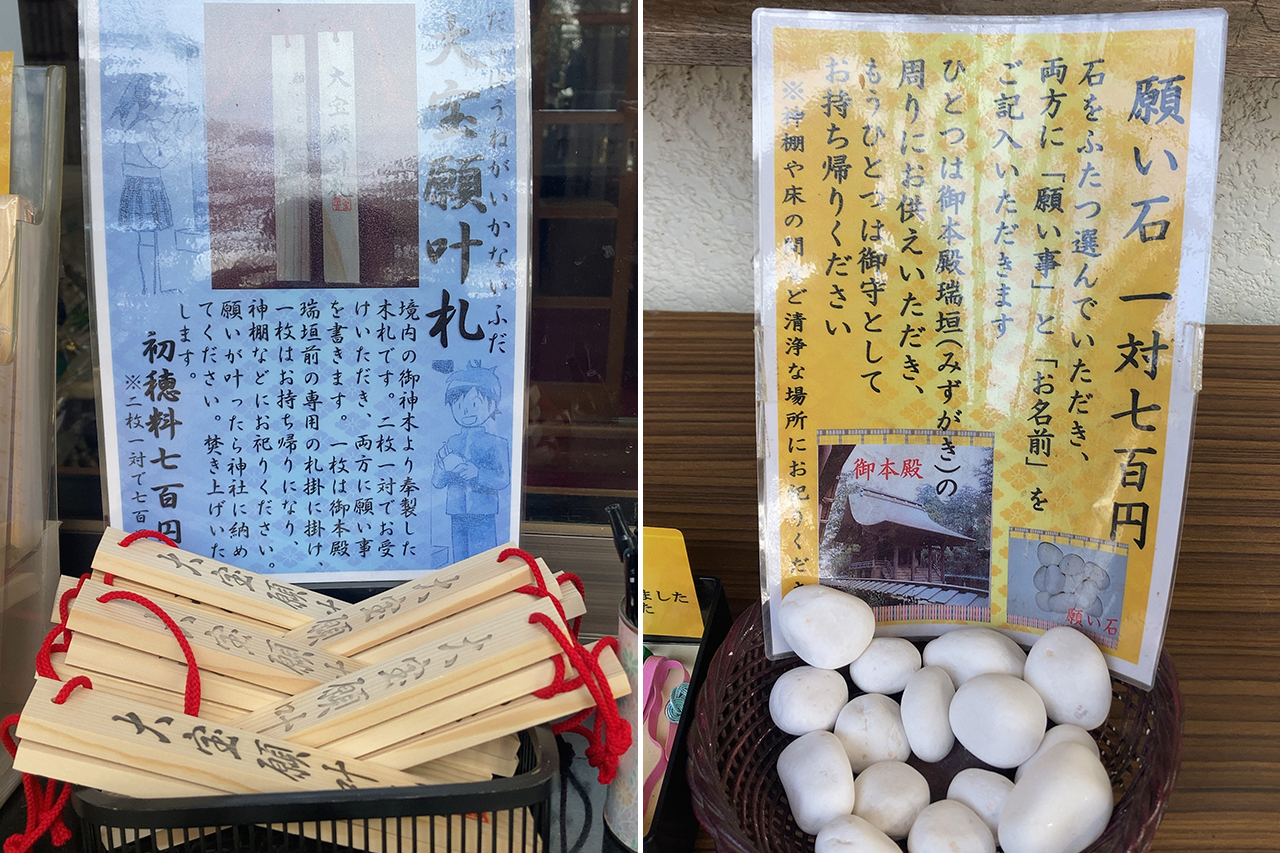 大宝願叶札
だいほうねがいかないふだ
境内の御神木より奉製した
木札です。二枚一対でお受
けいただき、両方に願い事
を書きます。一枚は御本殿
瑞垣前の専用の札掛に掛け、
一枚はお持ち帰りになり
神棚などにお祀りください。
願いが叶ったら神社に納め
てください。焚き上げいた
します。
初穂料七百円
※二枚一対で七百
大宝願叶
大宝願叶
大宝願叶
大宝願
大宝願叶
願い石 一対七百円
石をふたつ選んでいただき、
両方に「願い事」と「お名前」を
ご記入いただきます
ひとつは御本殿瑞垣(みずがき)の
周りにお供えいただき、
もうひとつは御守として
お持ち帰りください
※神棚や床の間など清浄な場所にお祀りくださ
御本殿
願い石
ました
た